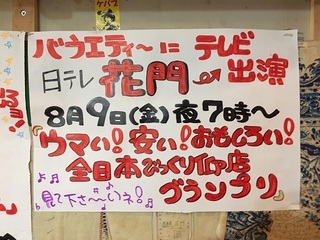 ケバブ
バラエティ〜に テレビ
日テレ 花門 出演
8月9日(金)夜7時〜
ウマい!安い!おもしろい!
全日本びっくり仰店
グランプリ
見て下さ〜いネ!